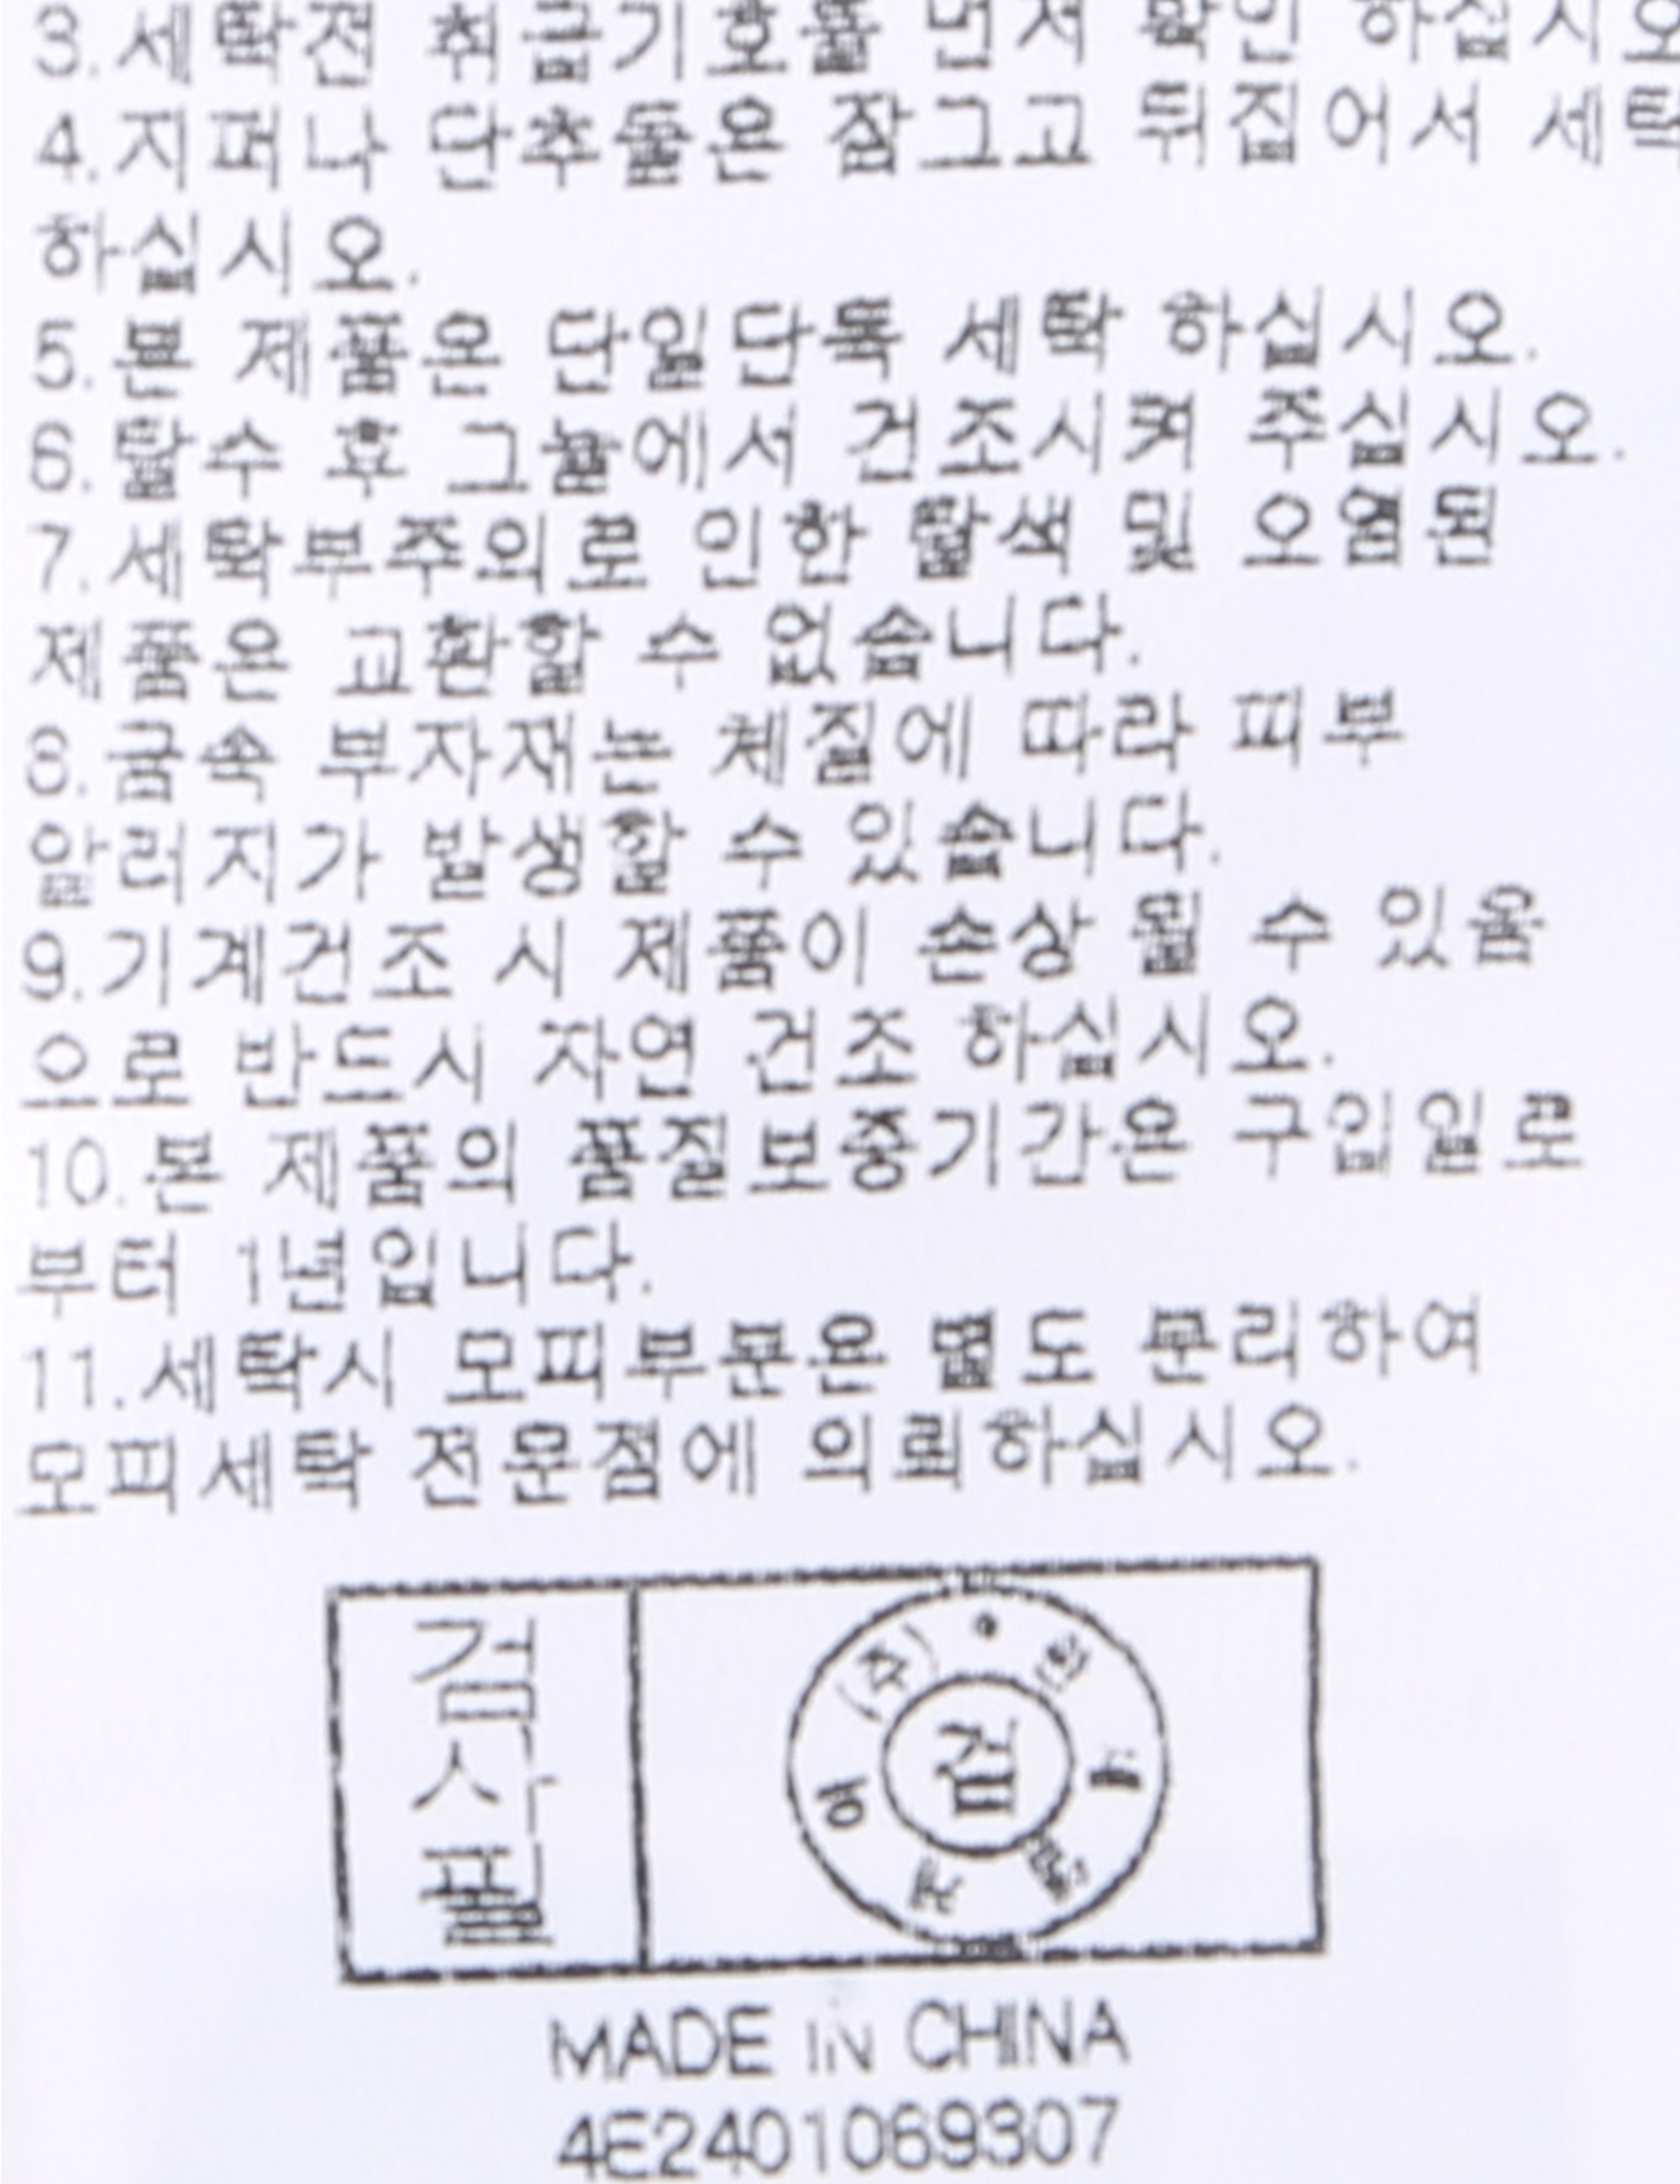 3.세탁전 취급기호를 먼저 확인 하십시오
4.지퍼나 단추들은 잠그고 뒤집어서 세탁
하십시오.
5.본 제품은 단일단독 세탁 하십시오.
6.탈수 후 그늘에서 건조시켜 주십시오.
7.세탁부주의로 인한 탈색 및 오염된
제품은 교환할 수 없습니다.
8.금속 부자재는 체질에 따라 피부
알러지가 발생할 수 있습니다.
9.기계건조 시 제품이 손상 될 수 있음
으로 반드시 자연 건조 하십시오.
10.본 제품의 품질보증기간은 구입일로
부터 1년입니다.
11.세탁시 모피부분은 별도 분리하여
모피세탁 전문점에 의뢰하십시오.
검사필
(주)
검
MADE IN CHINA
4E2401069307